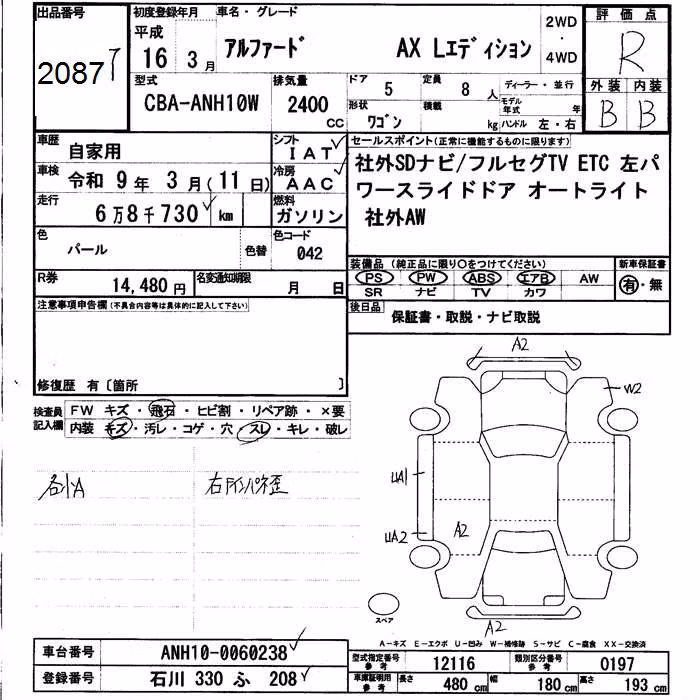 出品番号
20877
初度登録年月
平成
16年 3月
車名・グレード
アルファード AX Lエディション
2WD
・
4WD
評価点
R
型式
CBA-ANH10W
排気量
2400
CC
ドア
5
定員
8人
形状
ワゴン
積載
kg
ディーラー・並行
モデル年式
年
ハンドル 左・右
外装 内装
B B
車歴
自家用
シフト
IAT
車検
令和 9年 3月(11日)
冷房
AAC
走行
6万8千730 km
燃料
ガソリン
色
パール
色替
色コード
042
R券
14,480円
名変通知期限
月 日
セールスポイント(正常に機能するものに限ります)
社外SDナビ/フルセグTV ETC 左パ
ワースライドドア オートライト
社外AW
装備品 (純正品に限り○をつけてください)
PS PW ABS エアB AW
SR ナビ TV カワ
新車保証書
有・無
後日品
保証書・取説・ナビ取説
注意事項申告欄(不具合内容等は具体的に記入して下さい)
修復歴 有〔箇所 〕
検査員
記入欄
FW キズ・飛石・ヒビ割・リペア跡・×要
内装 キズ・汚レ・コゲ・穴・スレ・キレ・破レ
各小A
A2
W2
UA1
UA2
A2
A2
スペア
A-キズ E-エクボ U-凹み W-補修跡 S-サビ C-腐食 XX-交換済
車台番号
ANH10-0060238
登録番号
石川 330 ふ 208
型式指定番号
参考
12116
類別区分番号
参考
0197
車庫証明用
参考
長さ
480 cm
幅
180 cm
高さ
193 cm